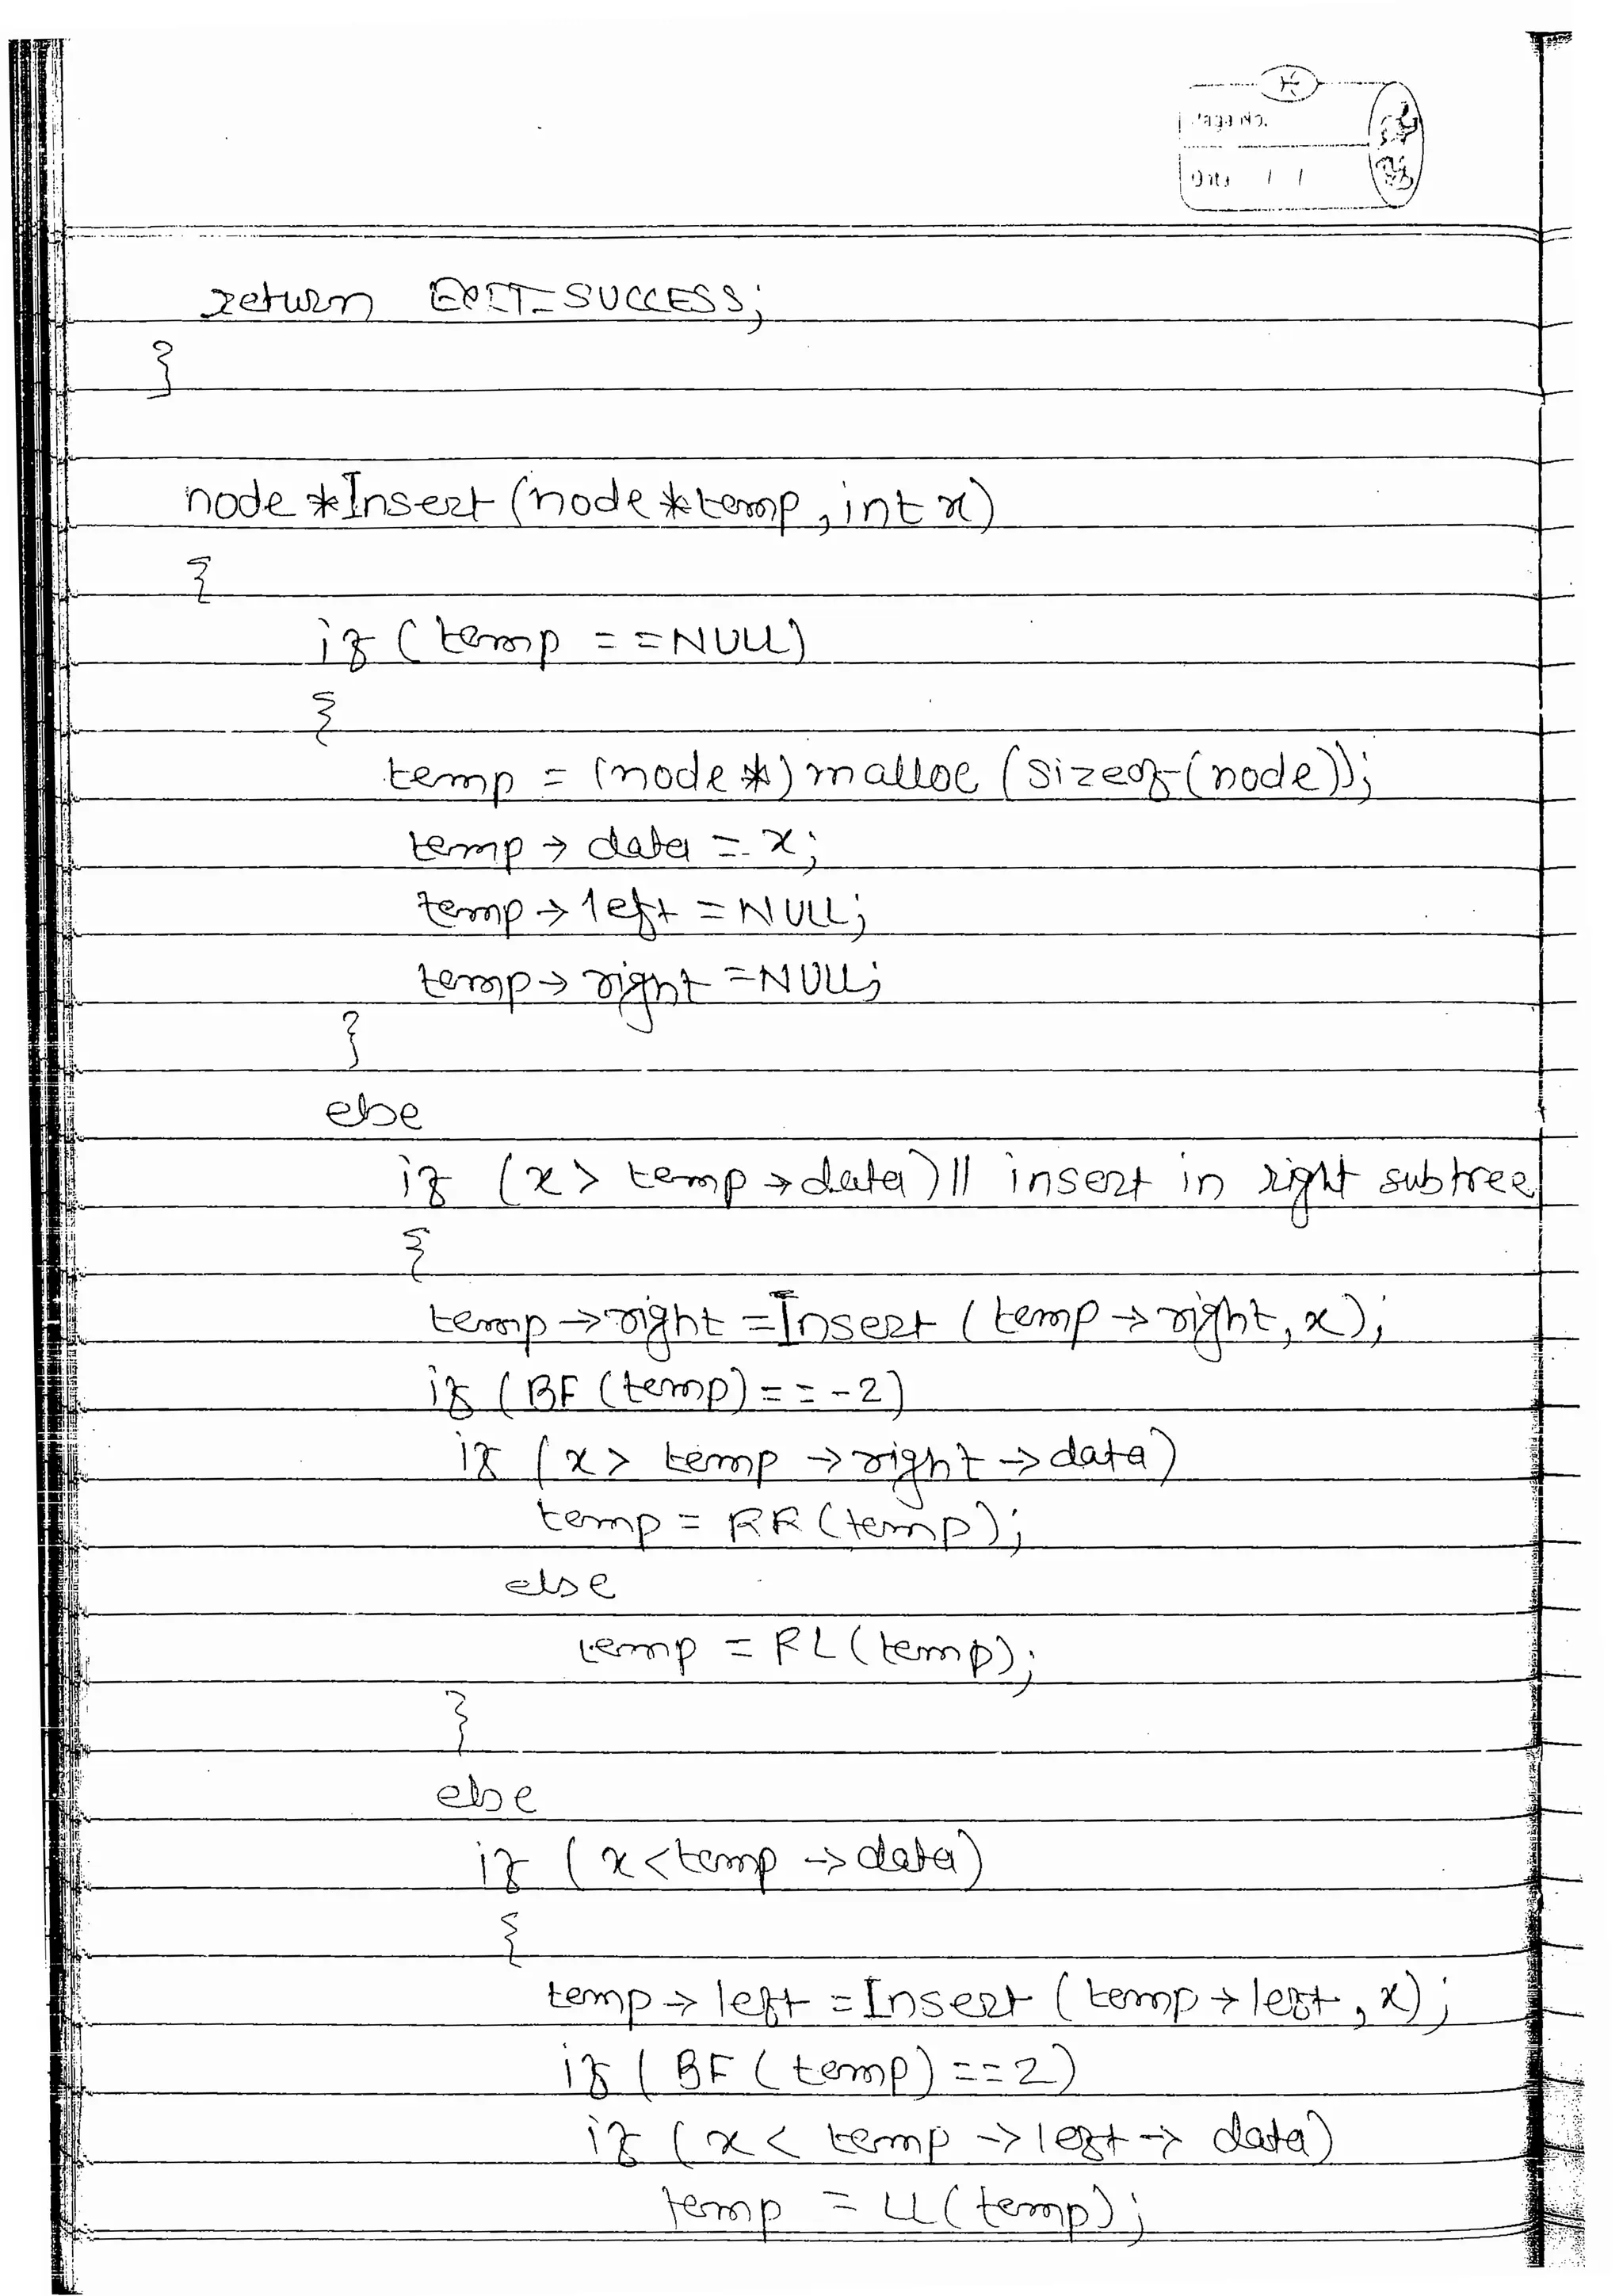 Page No.
Date / /
return EXIT_SUCCESS;
}
node *Insert (node *temp, int x)
{
if (temp ==NULL)
{
temp = (node *) malloc (sizeof(node));
temp → data = x;
temp → left = NULL;
temp → right = NULL;
}
else
if (x > temp → data) // insert in right subtree
{
temp → right = Insert (temp → right, x);
if (BF (temp) == -2)
if (x > temp → right → data)
temp = RR (temp);
else
temp = RL (temp);
}
else
if (x < temp → data)
{
temp → left = Insert (temp → left, x);
if (BF (temp) == 2)
if (x < temp → left → data)
temp = LL (temp);